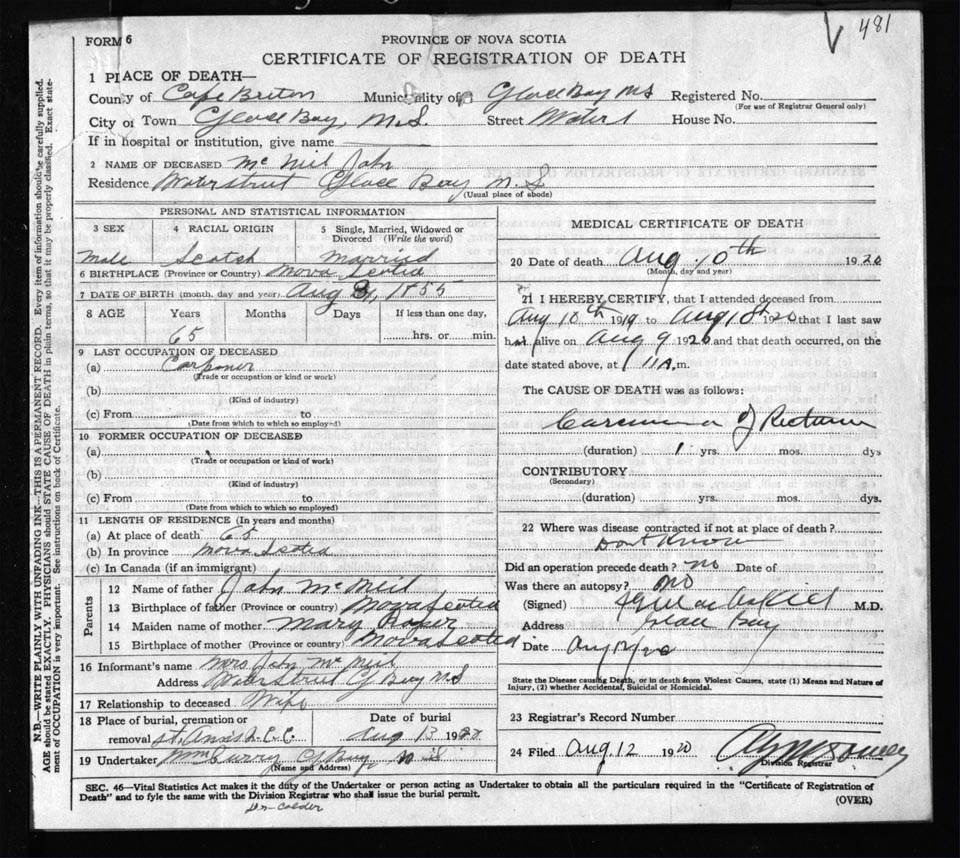 481
FORM 6
PROVINCE OF NOVA SCOTIA
CERTIFICATE OF REGISTRATION OF DEATH
N.B.—WRITE PLAINLY WITH UNFADING INK—THIS IS A PERMANENT RECORD. Every item of information should be carefully supplied.
AGE should be stated EXACTLY. PHYSICIANS should STATE CAUSE OF DEATH in plain terms, so that it may be properly classified. Exact state-
ment of OCCUPATION is very important. See instructions on back of Certificate.
1 PLACE OF DEATH—
County of Cape Breton Municipality of Glace Bay NS Registered No.
(For use of Registrar General only)
City or Town Glace Bay, N.S. Street Water House No.
If in hospital or institution, give name
2 NAME OF DECEASED Mc Neil John
Residence Water street Glace Bay N.S
(Usual place of abode)
PERSONAL AND STATISTICAL INFORMATION
3 SEX 4 RACIAL ORIGIN 5 Single, Married, Widowed or
Divorced (Write the word)
Male Scotch Married
6 BIRTHPLACE (Province or Country) Nova Scotia
7 DATE OF BIRTH (month, day and year) Aug 1855
8 AGE Years Months Days If less than one day,
65 hrs. or min.
9 LAST OCCUPATION OF DECEASED
(a)
(Trade or occupation or kind or work)
(b)
(Kind of industry)
(c) From to
(Date from which to which so employed)
10 FORMER OCCUPATION OF DECEASED
(a)
(Trade or occupation or kind of work)
(b)
(Kind of industry)
(c) From to
(Date from which to which so employed)
11 LENGTH OF RESIDENCE (In years and months)
(a) At place of death 65
(b) In province Nova Scotia
(c) In Canada (if an immigrant)
Parents
12 Name of father John McNeil
13 Birthplace of father (Province or country) Nova Scotia
14 Maiden name of mother Mary
15 Birthplace of mother (Province or country) Nova Scotia
16 Informant's name Mrs John McNeil
Address Water Street G Bay NS
17 Relationship to deceased Wife
18 Place of burial, cremation or Date of burial
removal St. Anns Aug 13 1920
19 Undertaker G Bay, N S
(Name and Address)
MEDICAL CERTIFICATE OF DEATH
20 Date of death Aug 10th 1920
(Month, day and year)
21 I HEREBY CERTIFY, that I attended deceased from
Aug 10th 1919 to Aug 10th 1920 that I last saw
h alive on Aug 9 1920 and that death occurred, on the
date stated above, at 11 A.m.
The CAUSE OF DEATH was as follows:
Carcinoma of Rectum
(duration) 1 yrs. mos. dys
CONTRIBUTORY
(Secondary)
(duration) yrs. mos. dys.
22 Where was disease contracted if not at place of death?
Dont Know
Did an operation precede death? no Date of
Was there an autopsy? no
(Signed) M.D.
Address Glace Bay
Date Aug
State the Disease causing Death, or in death from Violent Causes, state (1) Means and Nature of
Injury, (2) whether Accidental, Suicidal or Homicidal.
23 Registrar's Record Number
24 Filed Aug 12 1920
Division Registrar
SEC. 46—Vital Statistics Act makes it the duty of the Undertaker or person acting as Undertaker to obtain all the particulars required in the "Certificate of Registration of
Death" and to fyle the same with the Division Registrar who shall issue the burial permit.
(OVER)
Dr Calder